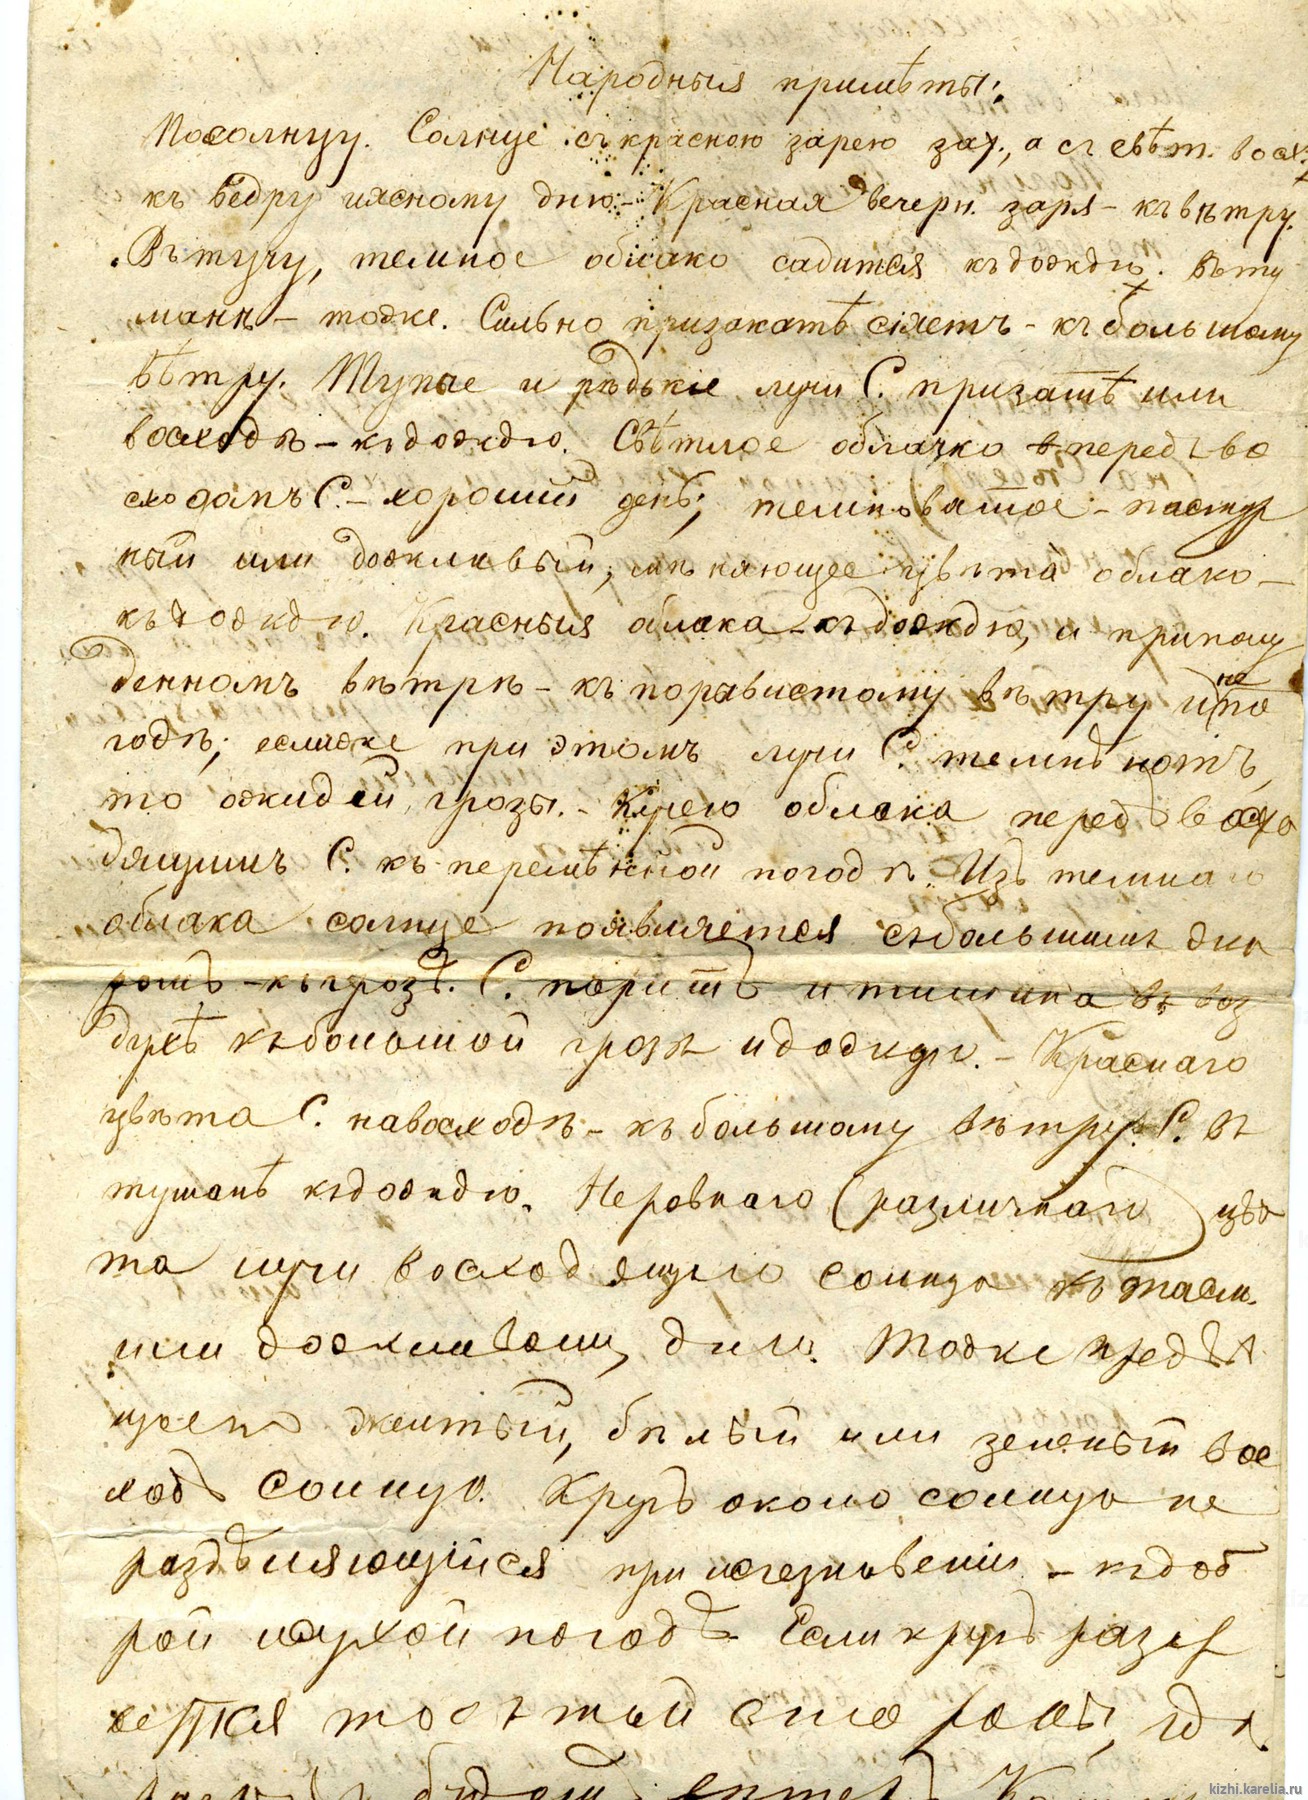 Народныя примѣты:
Посолнцу. Солнце съ красною зарею зах., а съ свѣт. восх.
къ ведру и ясному дню. – Красная вечерн. заря – къ вѣтру.
Въ тучу, темное облако садится къ дождю. Въ ту
манѣ – тоже. Сильно при закатѣ сіяетъ – къ большому
вѣтру. Тупые и рѣдькіе лучи С. при затѣ или
восходѣ – къ дождю. Свѣтлое облачко передъ во
сходомъ С. – хорошій день; темноватое – пасмур
ный или дожливый; мѣняющее цвѣта облако –
къ дождю. Красныя облака – къ дождю, а при полу
денномъ вѣтрѣ – къ порывистому вѣтру и не по
годѣ; еслиже при этомъ лучи С. темнѣютъ,
то ожидай грозы. – облака передъ восхо
дящимъ С. къ перемѣнной погодѣ. Изъ темнаго
облака солнце появляется съ большимъ жа
ромъ – къ грозѣ. С. паритъ и тишина въ воз
духѣ къ большой грозѣ и дождю. – Краснаго
цвѣта С. на восходѣ – къ большому вѣтру. С. въ
туманѣ къ дождю. Неровнаго (различнаго) цвѣ
та лучи восходящего солнца къ пасм.
или дожливому дню. Тоже предвѣ
щаетъ желтый, бѣлый или зеленый вос
ходъ солнца. Кругъ около солнца не
раздѣляющійся при исчезновеніи – къ доб
рой и сухой погодѣ. Если кругъ разор
вется то съ той стороны, гдѣ
будетъ вѣтеръ.
kizhi.karelia.ru